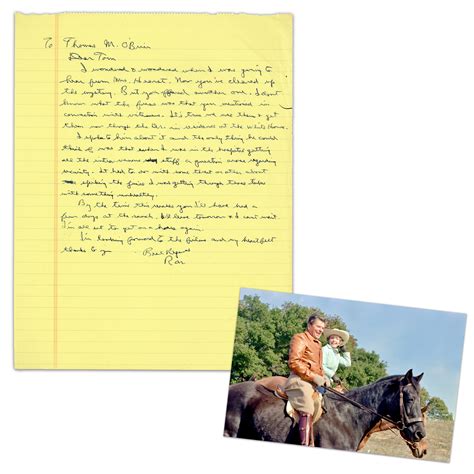 To Thomas M. O'Brien
Dear Tom
I wondered & wondered when I was going to
hear from Mrs. Hearst. Now you've cleared up
the mystery. But you opened another one. I don't
know what the fuss was that you mentioned in
connection with
then now though the Dr. is
I spoke to him about it and the only thing he could
think of was that when I was in the hospital getting
all the intra venous stuff a question arose regarding
It had to do with some that or other about
the fumes I was getting through tubes
with something unhealthy.
By the time this reaches you I'll have had a
few days at the ranch. I'll leave tomorrow & I can't wait.
I'm all set to get on a horse again.
I'm looking forward to the films and my heartfelt
thanks to you
Best Regards
Ron